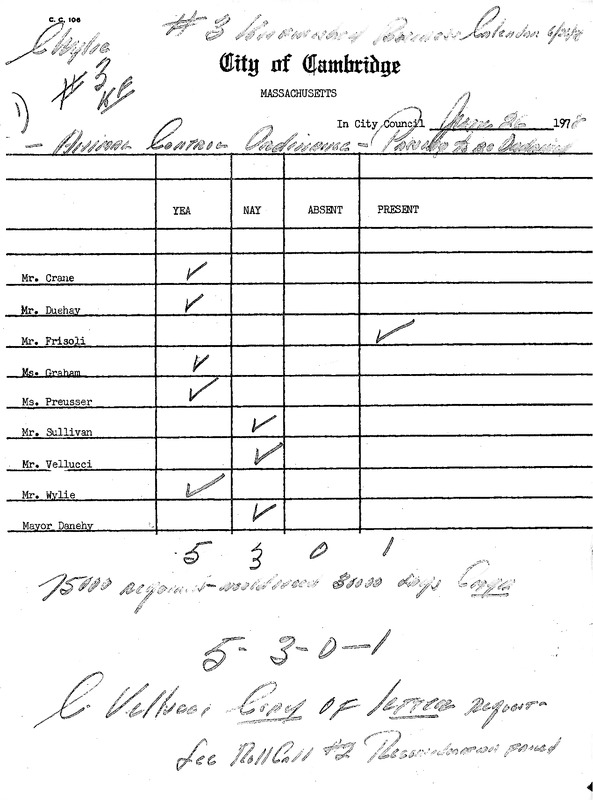 C. C. 106
# 3 Unfinished Business Calendar 6/26/78
C Wylie
# 3
City of Cambridge
MASSACHUSETTS
1)
In City Council June 26 1978
- Animal Control Ordinance - Passage to be Ordained
YEA NAY ABSENT PRESENT
Mr. Crane ✓
Mr. Duehay ✓
Mr. Frisoli ✓
Ms. Graham ✓
Ms. Preusser ✓
Mr. Sullivan ✓
Mr. Vellucci ✓
Mr. Wylie ✓
Mayor Danehy ✓
5 3 0 1
days
5-3-0-1
C Vellucci Copy of letter request
See Roll Call #2 Reconsideration